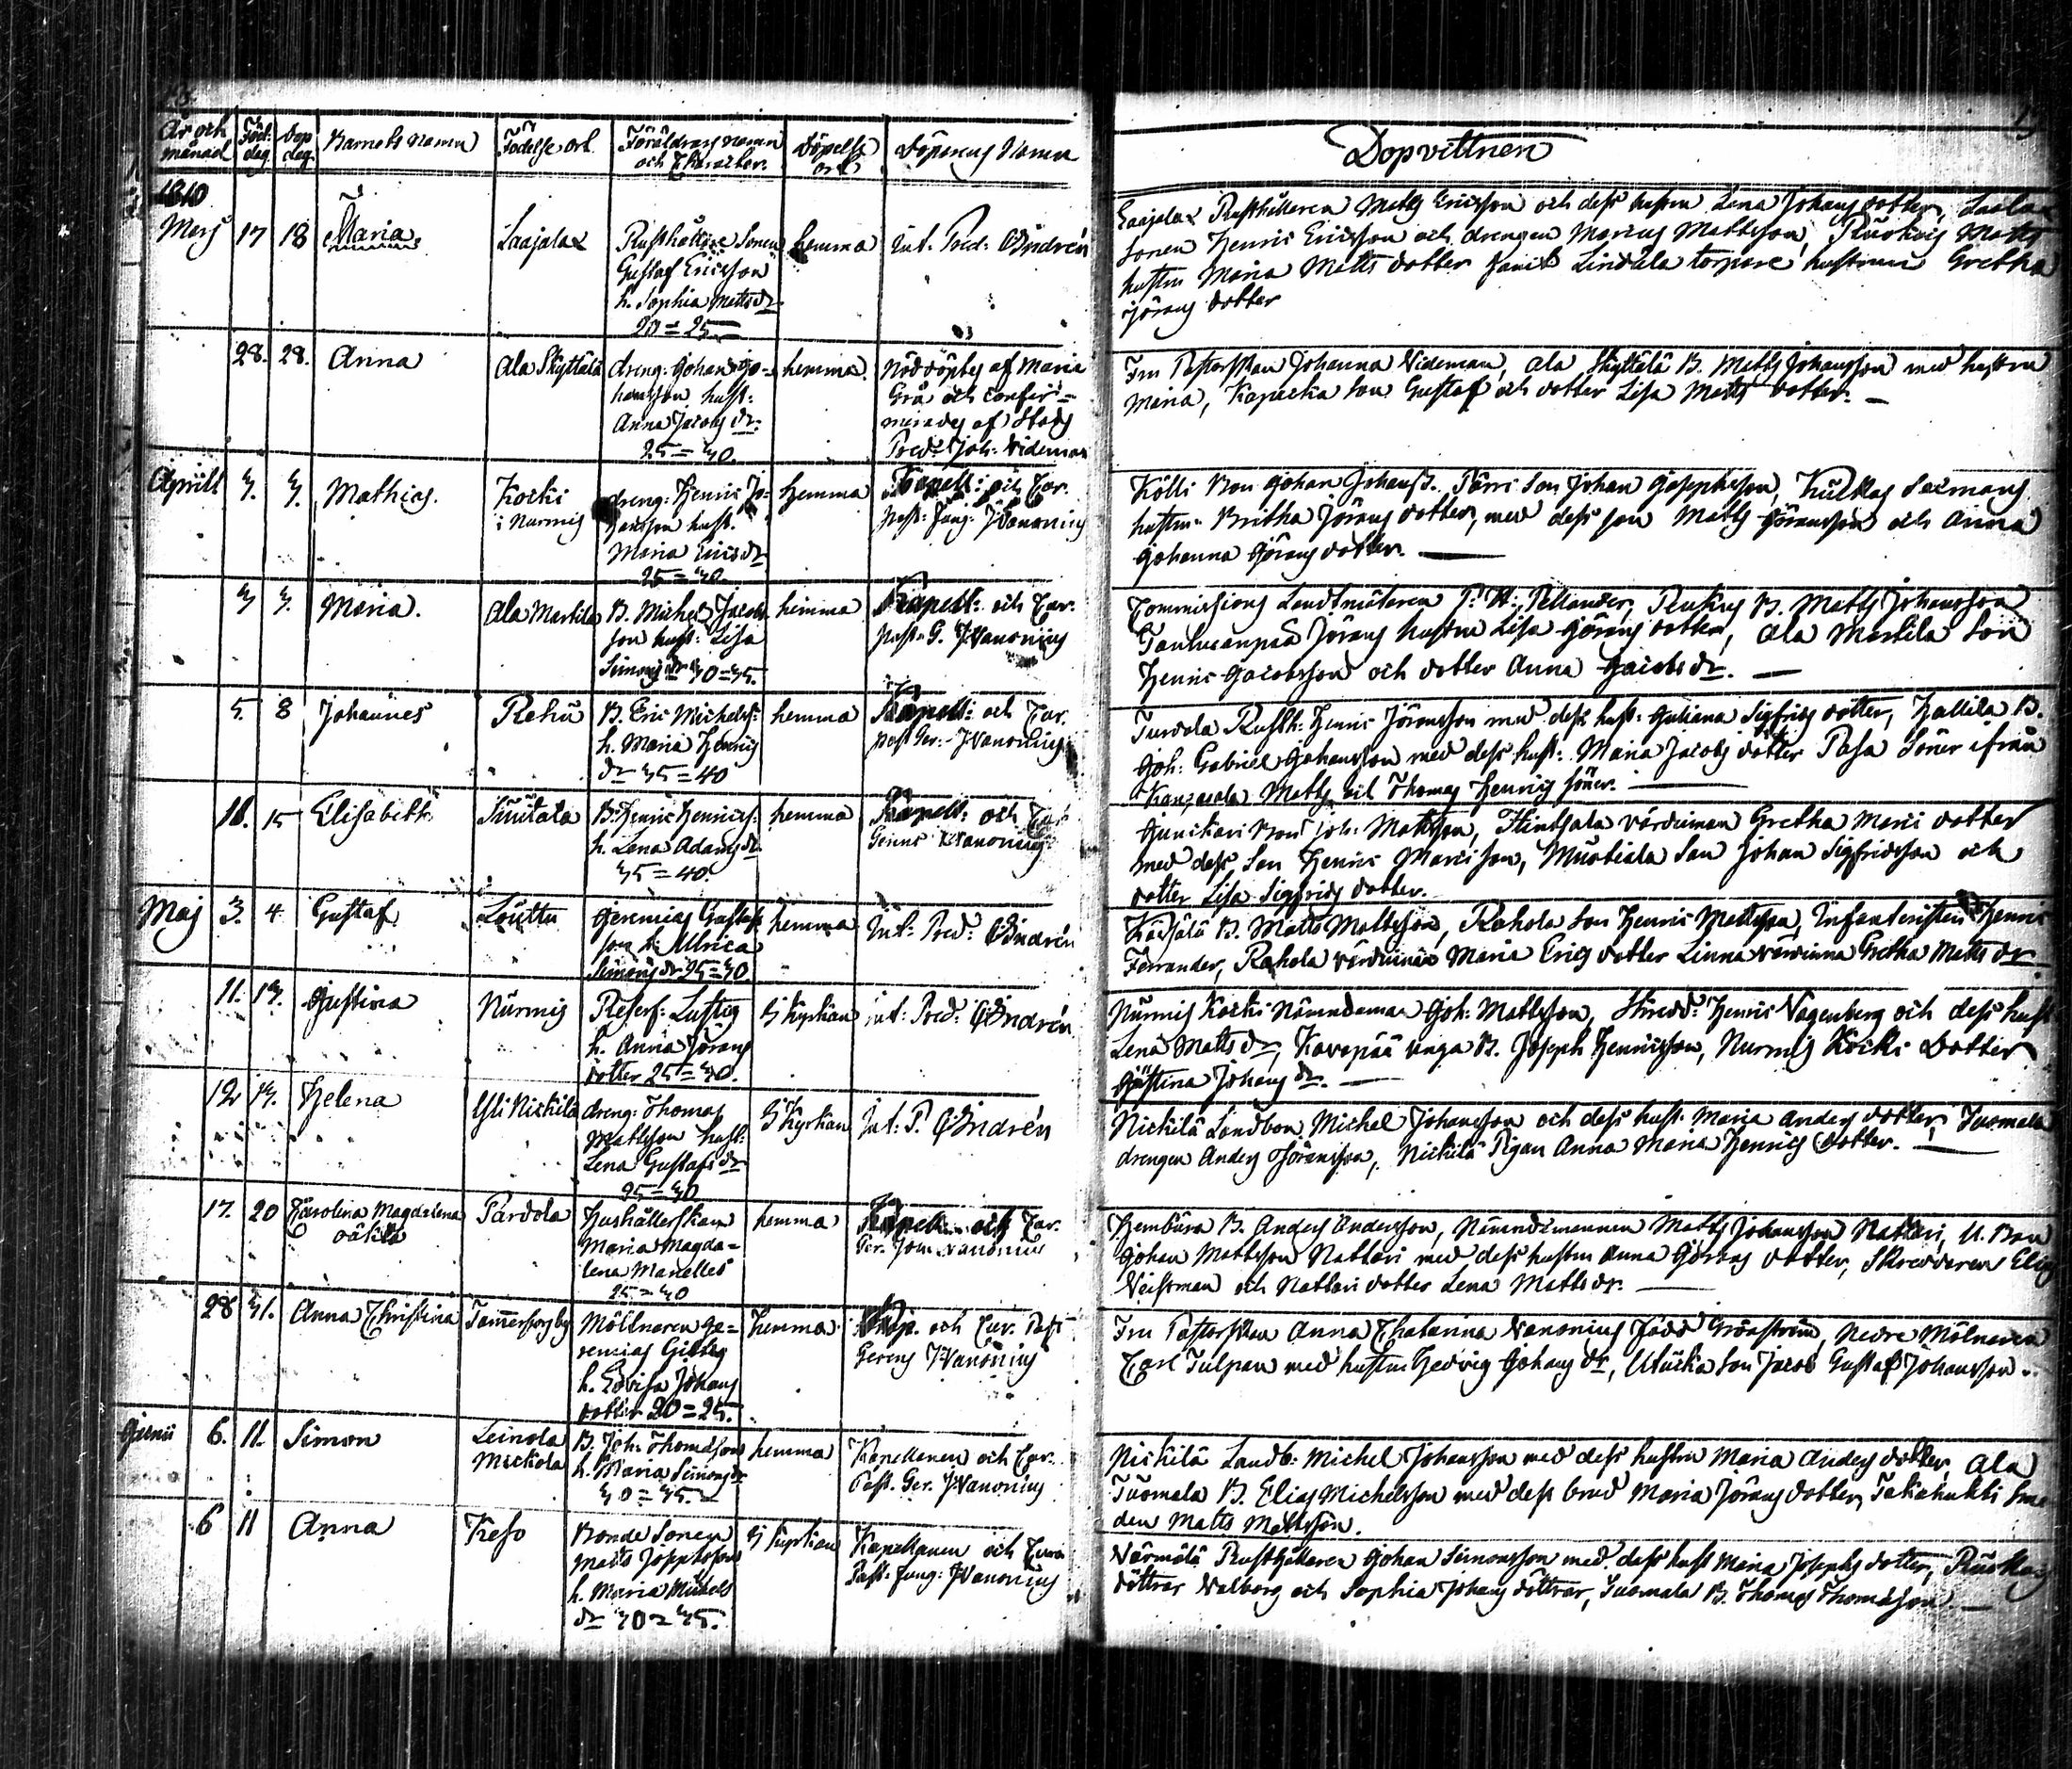 År och månad | Föd: dag | Dop dag. | Barnets namn | Födelse ort | Föräldrars namn och Character. | Döpelse ort | Döparens Namn
Dopvittnen
1810
Marj 17 18 Maria. Laajala hemma Int. Pred: Andrén
Rusthållare Sonen
Gustaf Ericsson
h. Sophia Mattsdr
20=25
Laajala Rusthållaren Matts Ericsson och dess hustru Lena Johans dotter,
Sonen Henric Ericsson och drengen Marcus Mattsson, Matts
hustru Maria Matts dotter samt Lindala torpare hustrun Gretha
Jörans dotter
28. 28. Anna Ala Skyttälä hemma.
dreng: Johan Jo=
hansson hust:
Anna Jacobs dr:
25=30.
Nöddöptes af Maria
Grå och confir=
merades af Stads
Pred: Joh: Wideman
Fru Pastorskan Johanna Wideman, Ala Skyttälä B. Matts Johansson med hustru
Maria, Kapecka son Gustaf och dotter Lisa Matts dotter. —
Aprill 3. 3. Mathias. Koski i Nurmis hemma
dreng: Henric Jo=
hansson hust.
Maria Ericsdr
25=30.
Kapell: och Cur.
past: Jung: J. Wanonius
Kölli Bon Johan Johanss. son Johan Josephsson,
hustru Britha Jörans dotter, med dess son Matts Göransson och Anna
Johanna Görans dotter. —
3 3. Maria. Ala Markila hemma
B. Michel Jacobs
son hust: Lisa
Simons dr 30=35.
Kapell: och Cur.
past. G. J. Wanonius
Commissions Landtmätaren P. W. Pellander, Penkus B. Matts Johansson
Jörans hustru Lisa Görans dotter, Ala Markila Son
Henric Jacobsson och dotter Anna Jacobs dr. —
5. 8 Johannes Rehu hemma
B. Eric Michels:
h. Maria Henrics
dr 35=40
Kapell: och Cur.
past Ger: J. Wanonius
Turdola Rusth: Henric Jöransson med dess hust: Juliana Sigfrids dotter, Hallila B.
Joh: Gabriel Johansson med dess hust: Maria Jacobs dotter Pasa Söner ifrån
Kangasala Matts och Thomas Henrics söner. —
11. 15 Elisabeth. hemma
B. Henric Henrics:
h. Lena Adams dr
35=40.
Kapell: och Cur
Gerens J. Wanonius
Junikari Bon Joh: Mattsson, värdinnan Gretha Marci dotter
med dess son Henric Marcisson, Mustiala son Johan Sigfridsson och
dotter Lisa Sigfrids dotter.
Maj 3. 4 Gustaf hemma Int: Pred: Andrén
Jeremias Gustaf
son h: Ulrica
Simons dr 25=30.
B. Matts Mattsson, Rahola Son Henric Mattsson, Infanteristen Henric
Rahola värdinna Maria Erics dotter Linna värdinna Gretha Matts dr.
11. 13. Justina Nurmis I Kyrkan int: Pred: Andrén
Reserf: Lustig
h. Anna Jörans
dotter 25=30.
Nurmis Koski Nämndeman Joh: Mattsson, Skredd: Henric Vagenberg och dess hust
Lena Matts dr, Kovapää unga B. Joseph Henricsson, Nurmis Koski Dotter
Justina Johans dr. —
12 13. Helena Yli Nickilä I Kyrkan Int. P. Andrén
dreng: Thomas
Mattsson hust:
Lena Gustafs dr
25=30
Nickilä Landbon Michel Johansson och dess hust: Maria Anders dotter, Tuomala
drengen Anders Göransson, Nickilä Pigan Anna Maria Henrics dotter. —
17. 20 Carolina Magdalena oäkta Pardola hemma
Hushållerskan
Maria Magda=
lena Manelles
25=30
Kapell och Cur.
Ger. J. Wanonius
B. Anders Andersson, Nämndemannen Matts Johansson Nattari, U. Bon
Johan Mattsson Nattari med dess hustru Anna Görans dotter, Skreddaren Elias
och Nattari dotter Lena Matts dr. —
28 31. Anna Christina Tammerforsby Hemma
Möllnaren Je=
remias Gilberg
h. Lovisa Johans
dotter 20=25.
Kap. och Cur. Past
Gerens J. Wanonius
Fru Pastorskan Anna Chatarina Wanonius född Grönström, nedre Mölnaren
Carl Tulpan med hustru Hedvig Johans dr, son Jacob Gustaf Johansson.
Junii 6. 11. Simon Leinola Mickola hemma
B. Joh: Thomasson
h. Maria Simons dr
30=35.
Kapellanen och Cur.
Past. Ger. J. Wanonius
Nickilä Landb: Michel Johansson med dess hustru Maria Anders dotter, Ala
Tuomala B. Elias Michelsson med dess brud Maria Jörans dotter, Takahuhti Sme
den Matts Mattsson.
6 11 Anna Keso I Kyrkan
Bonde Sonen
Matts Josephsson
h. Maria Michels
dr 30=35.
Kapellanen och Cura
Past: Jung: J. Wanonius
Wärmälä Rusthållaren Johan Simonsson med dess hust Maria Josephs dotter,
döttrar Walborg och Sophia Johans döttrar, Tuomala B. Thomas Thomasson —